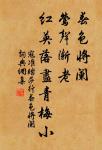 春色將闌
鶯聲漸老
紅英落盡青梅小
寇準踏莎行春色將闌
詞典網集